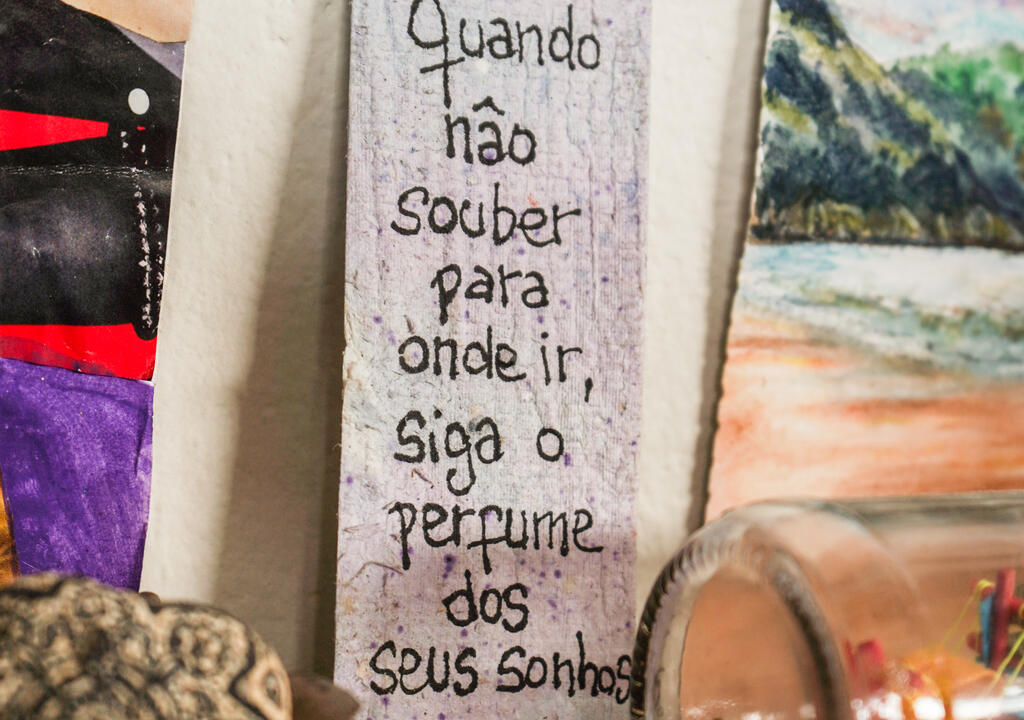 Quando
nâo
souber
para
onde ir,
siga o
perfume
dos
seus sonhos